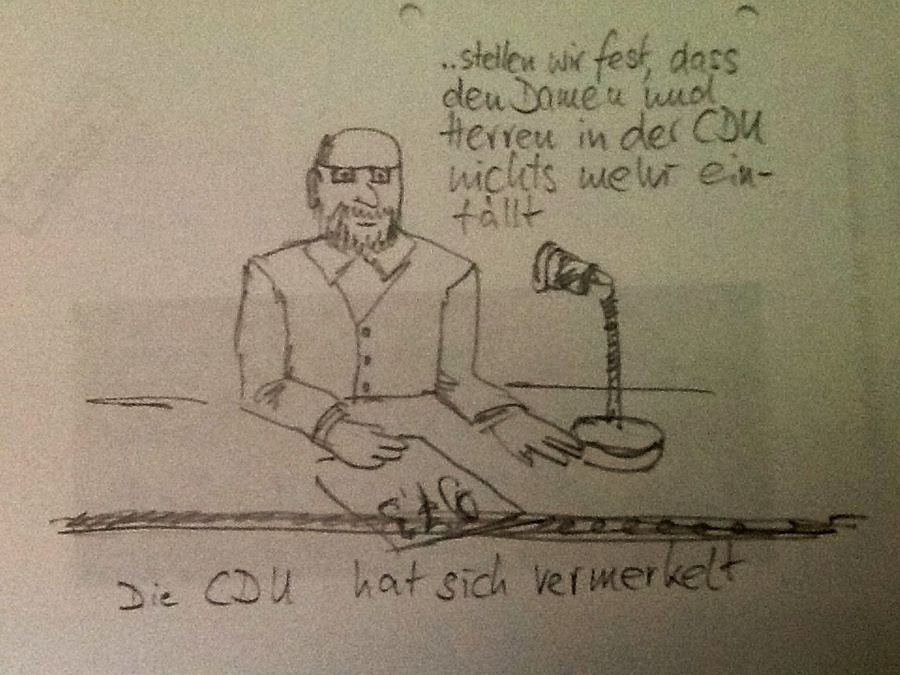 ..stellen wir fest, dass
den Damen und
Herren in der CDU
nichts mehr ein-
fällt
Die CDU hat sich vermerkelt